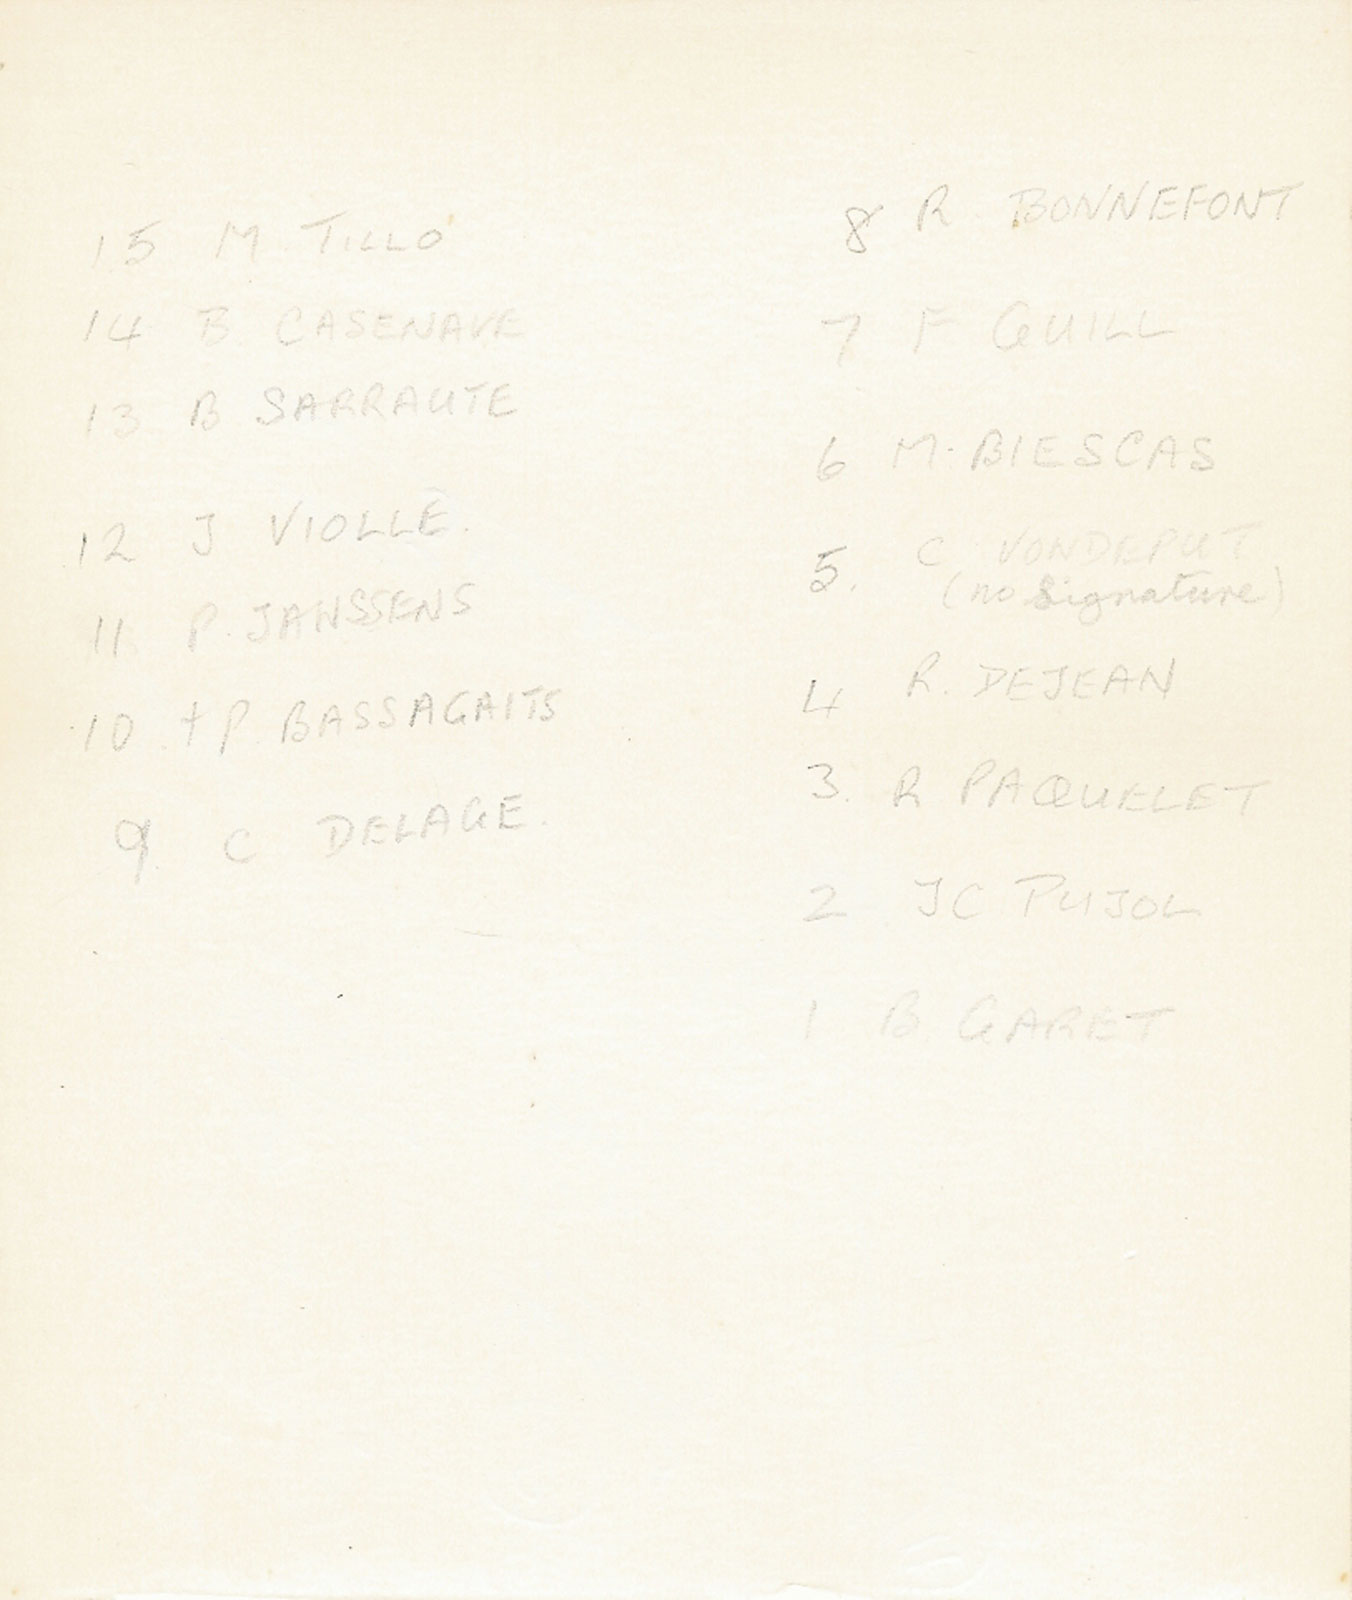 15 M. TILLO
14 B. CASENAVE
13 B SARRAUTE
12 J VIOLLE.
11 P. JANSSENS
10 + P. BASSAGAITS
9 C DELAGE.
8 R. BONNEFONT
7 F GUILL
6 M. BIESCAS
5. C. VONDEPUT
(no signature)
4 R. DEJEAN
3. R PAQUELET
2 JC PUJOL
1 B. GARET